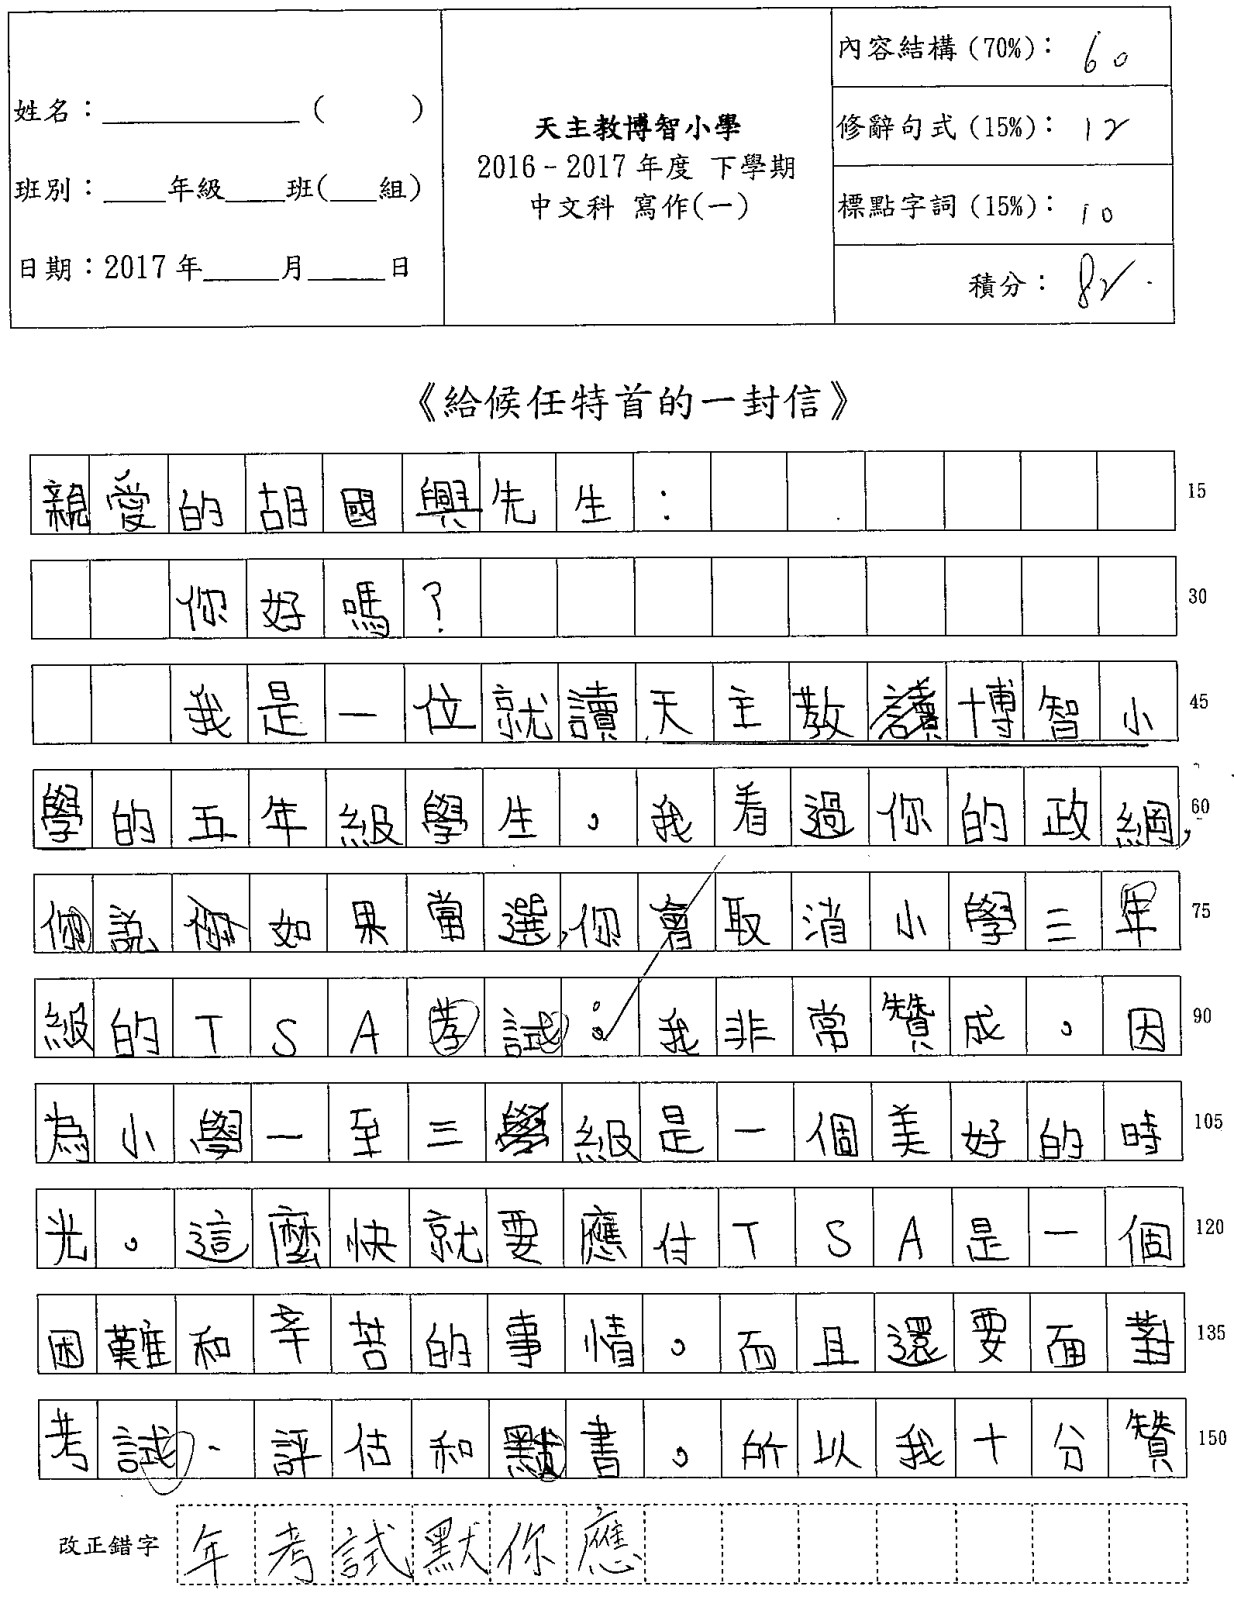 姓名：＿＿＿＿＿＿（　　）
班別：＿＿年級＿＿班(＿＿組)
日期：2017年＿＿月＿＿日
天主教博智小學
2016-2017年度 下學期
中文科 寫作(一)
內容結構(70%)：60
修辭句式(15%)：12
標點字詞(15%)：10
積分：82
《給候任特首的一封信》
親愛的胡國興先生：　　　　　　15
　　你好嗎？　　　　　　　　　30
　　我是一位就讀天主教讀博智小 45
學的五年級學生。我看過你的政綱， 60
你說，你如果當選，你會取消小學三年 75
級的TSA考試。我非常贊成。因 90
為小學一至三學級是一個美好的時 105
光。這麼快就要應付TSA是一個 120
困難和辛苦的事情。而且還要面對 135
考試、評估和默書。所以我十分贊 150
改正錯字 年考試默你應